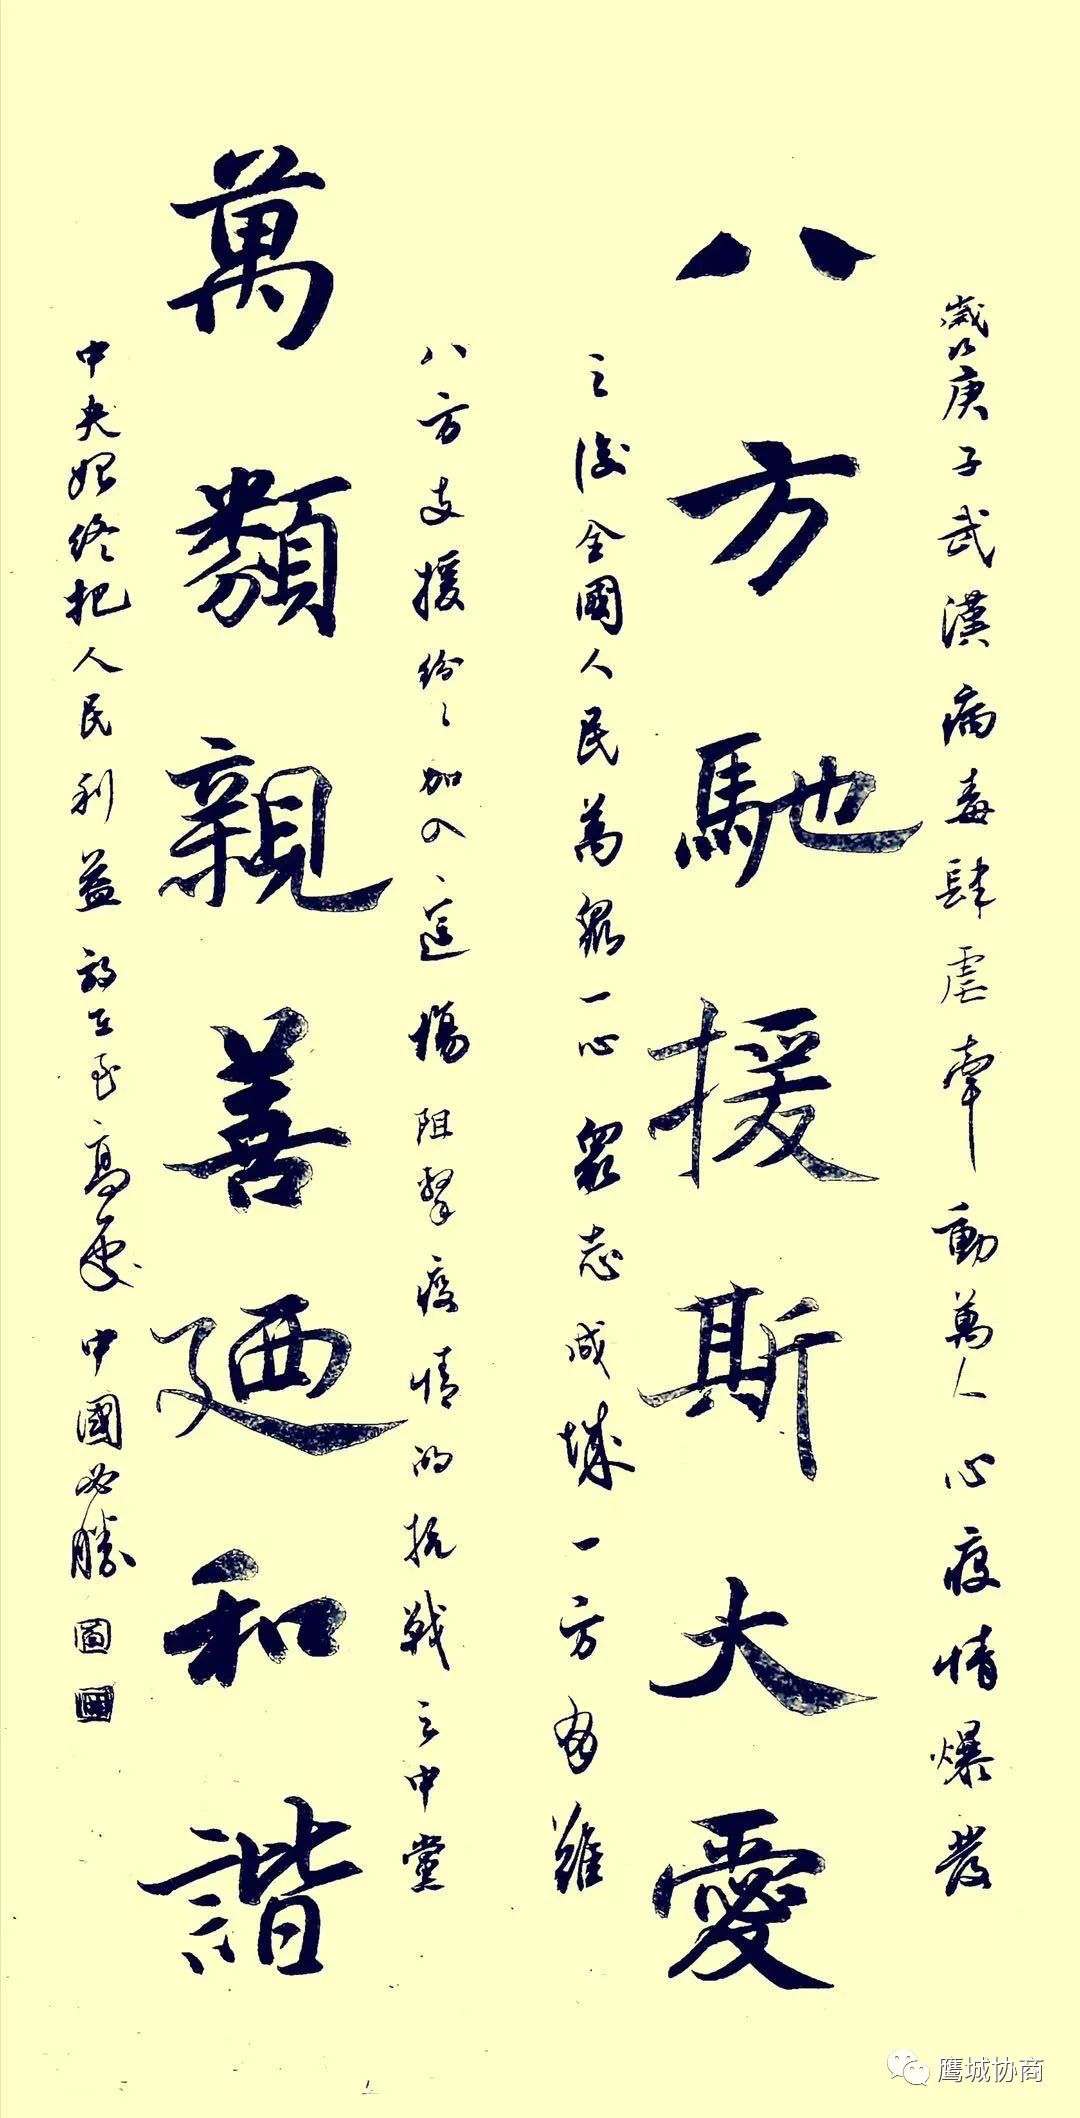 歲次庚子武漢病毒肆虐牽動萬人心疫情爆發
八方馳援斯大愛
之後全國人民萬眾一心眾志成城一方有難
八方支援紛紛加入這場阻擊疫情的抗戰之中黨
萬類親善廼和諧
中央始終把人民利益放在至高處中國必勝
鹰城协商